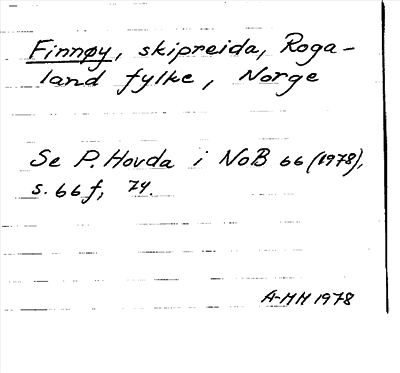 Finnøy, skipreida, Roga-
land fylke, Norge
Se P. Hovda i NoB 66 (1978),
s. 66 f, 74.
A-MH 1978